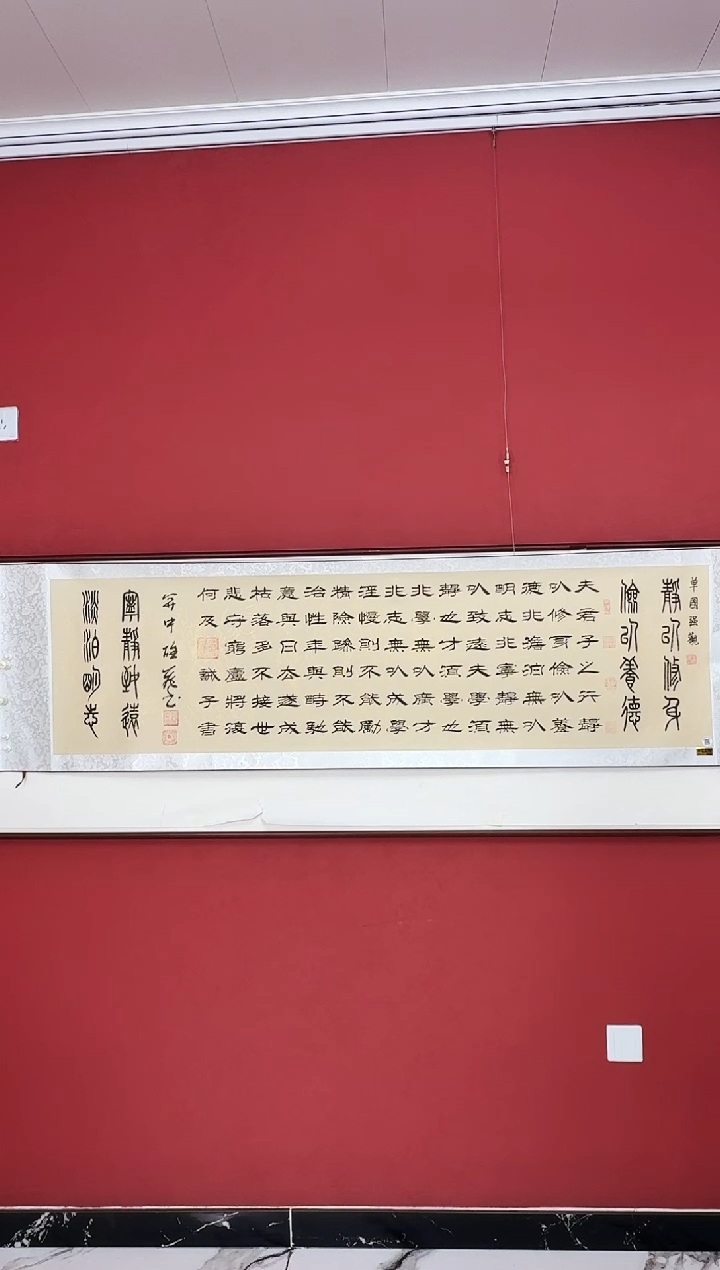 單國強觀
靜以修身
儉以養德
夫君子之行靜
以修身儉以養
德非澹泊無以
明志非寧靜無
以致遠夫學須
靜也才須學也
非學無以廣才
非志無以成學
淫慢則不能勵
精險躁則不能
治性年與時馳
意與日去遂成
枯落多不接世
悲守窮廬將復
何及 誡子書
寧靜致遠
淡泊明志